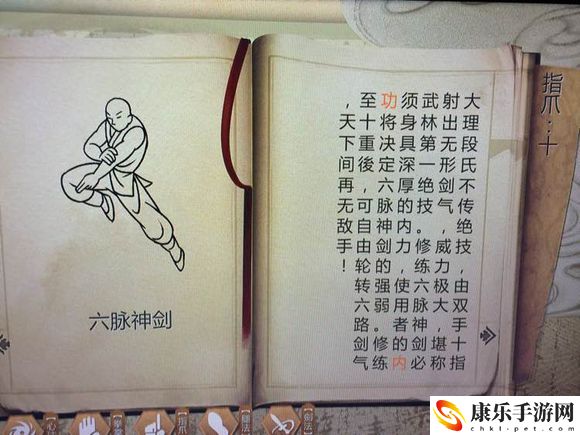 六脉神剑
大理段氏不传绝技，由双手十指
射出无形剑气，威力极大，堪称
武林第一绝技。修练六脉神剑必
须身具深厚的内力，使用者的内
功将决定六脉神剑的强弱。修练
至十重後，可自由轮转六路剑气
，天下间再无敌手！
指爪：十
康乐手游网
chkl-pet.com